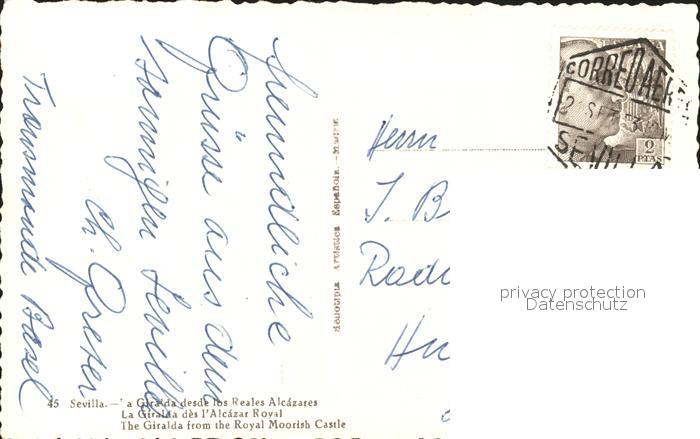 Freundliche
Grüsse aus dem
sonnigen Sevilla
Ch. Greter
Basel
Heliotipia Artística Española.—Madrid
Herrn
J. B
Rade
Hu
ESPAÑA
CORREO AER
2 SE
SEVILLA
2
PTAS
privacy protection
Datenschutz
45 Sevilla.— a Giralda desde los Reales Alcázares
La Giralda dès l'Alcázar Royal
The Giralda from the Royal Moorish Castle